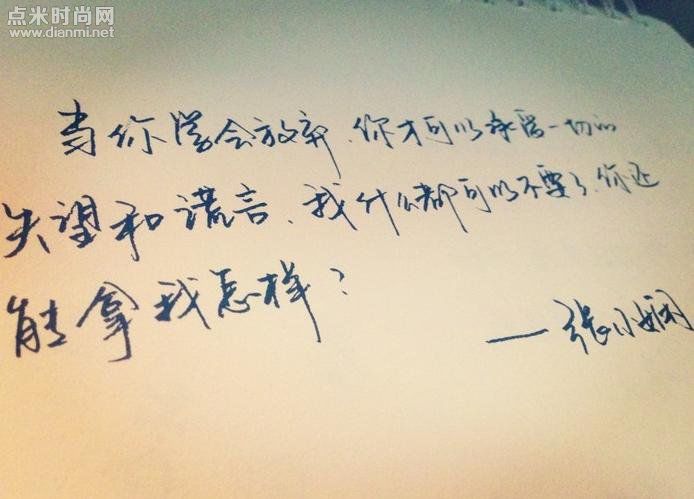 点米时尚网
www.dianmi.net
当你学会放弃、你才可以承受一切的
失望和谎言、我什么都可以不要了、你还
能拿我怎样?
—张小娴